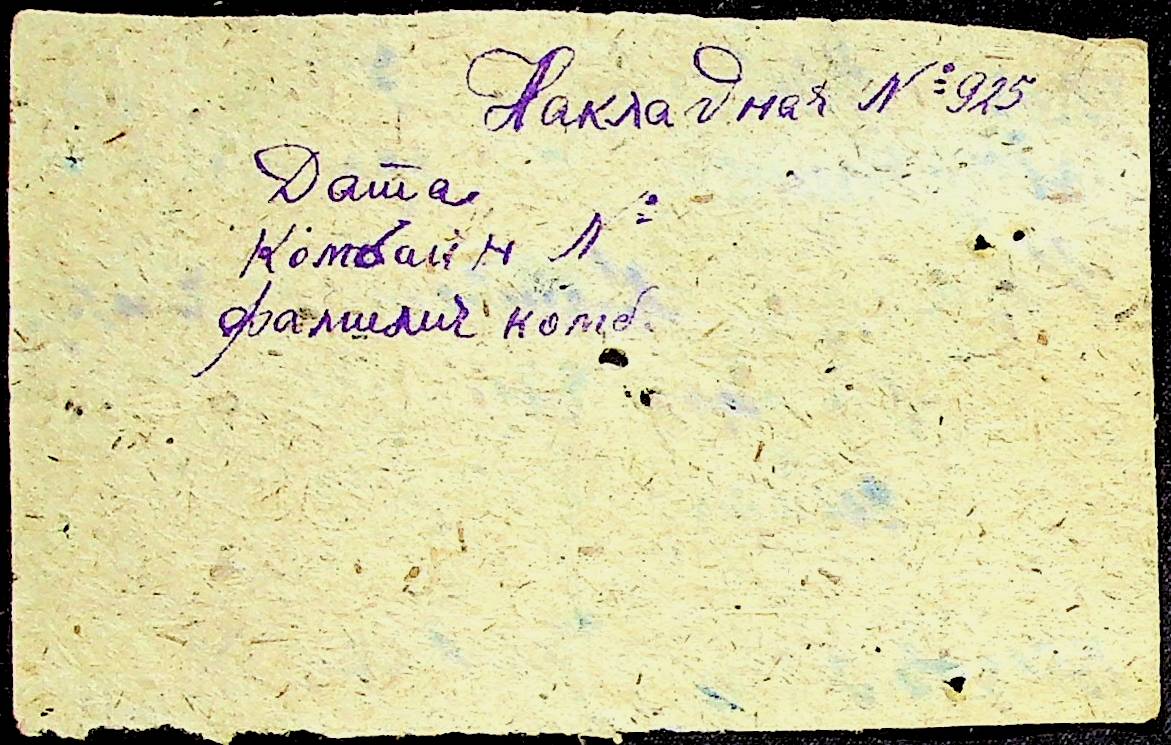 Накладная №925
Дата
Комбайн №
фамилия комб.